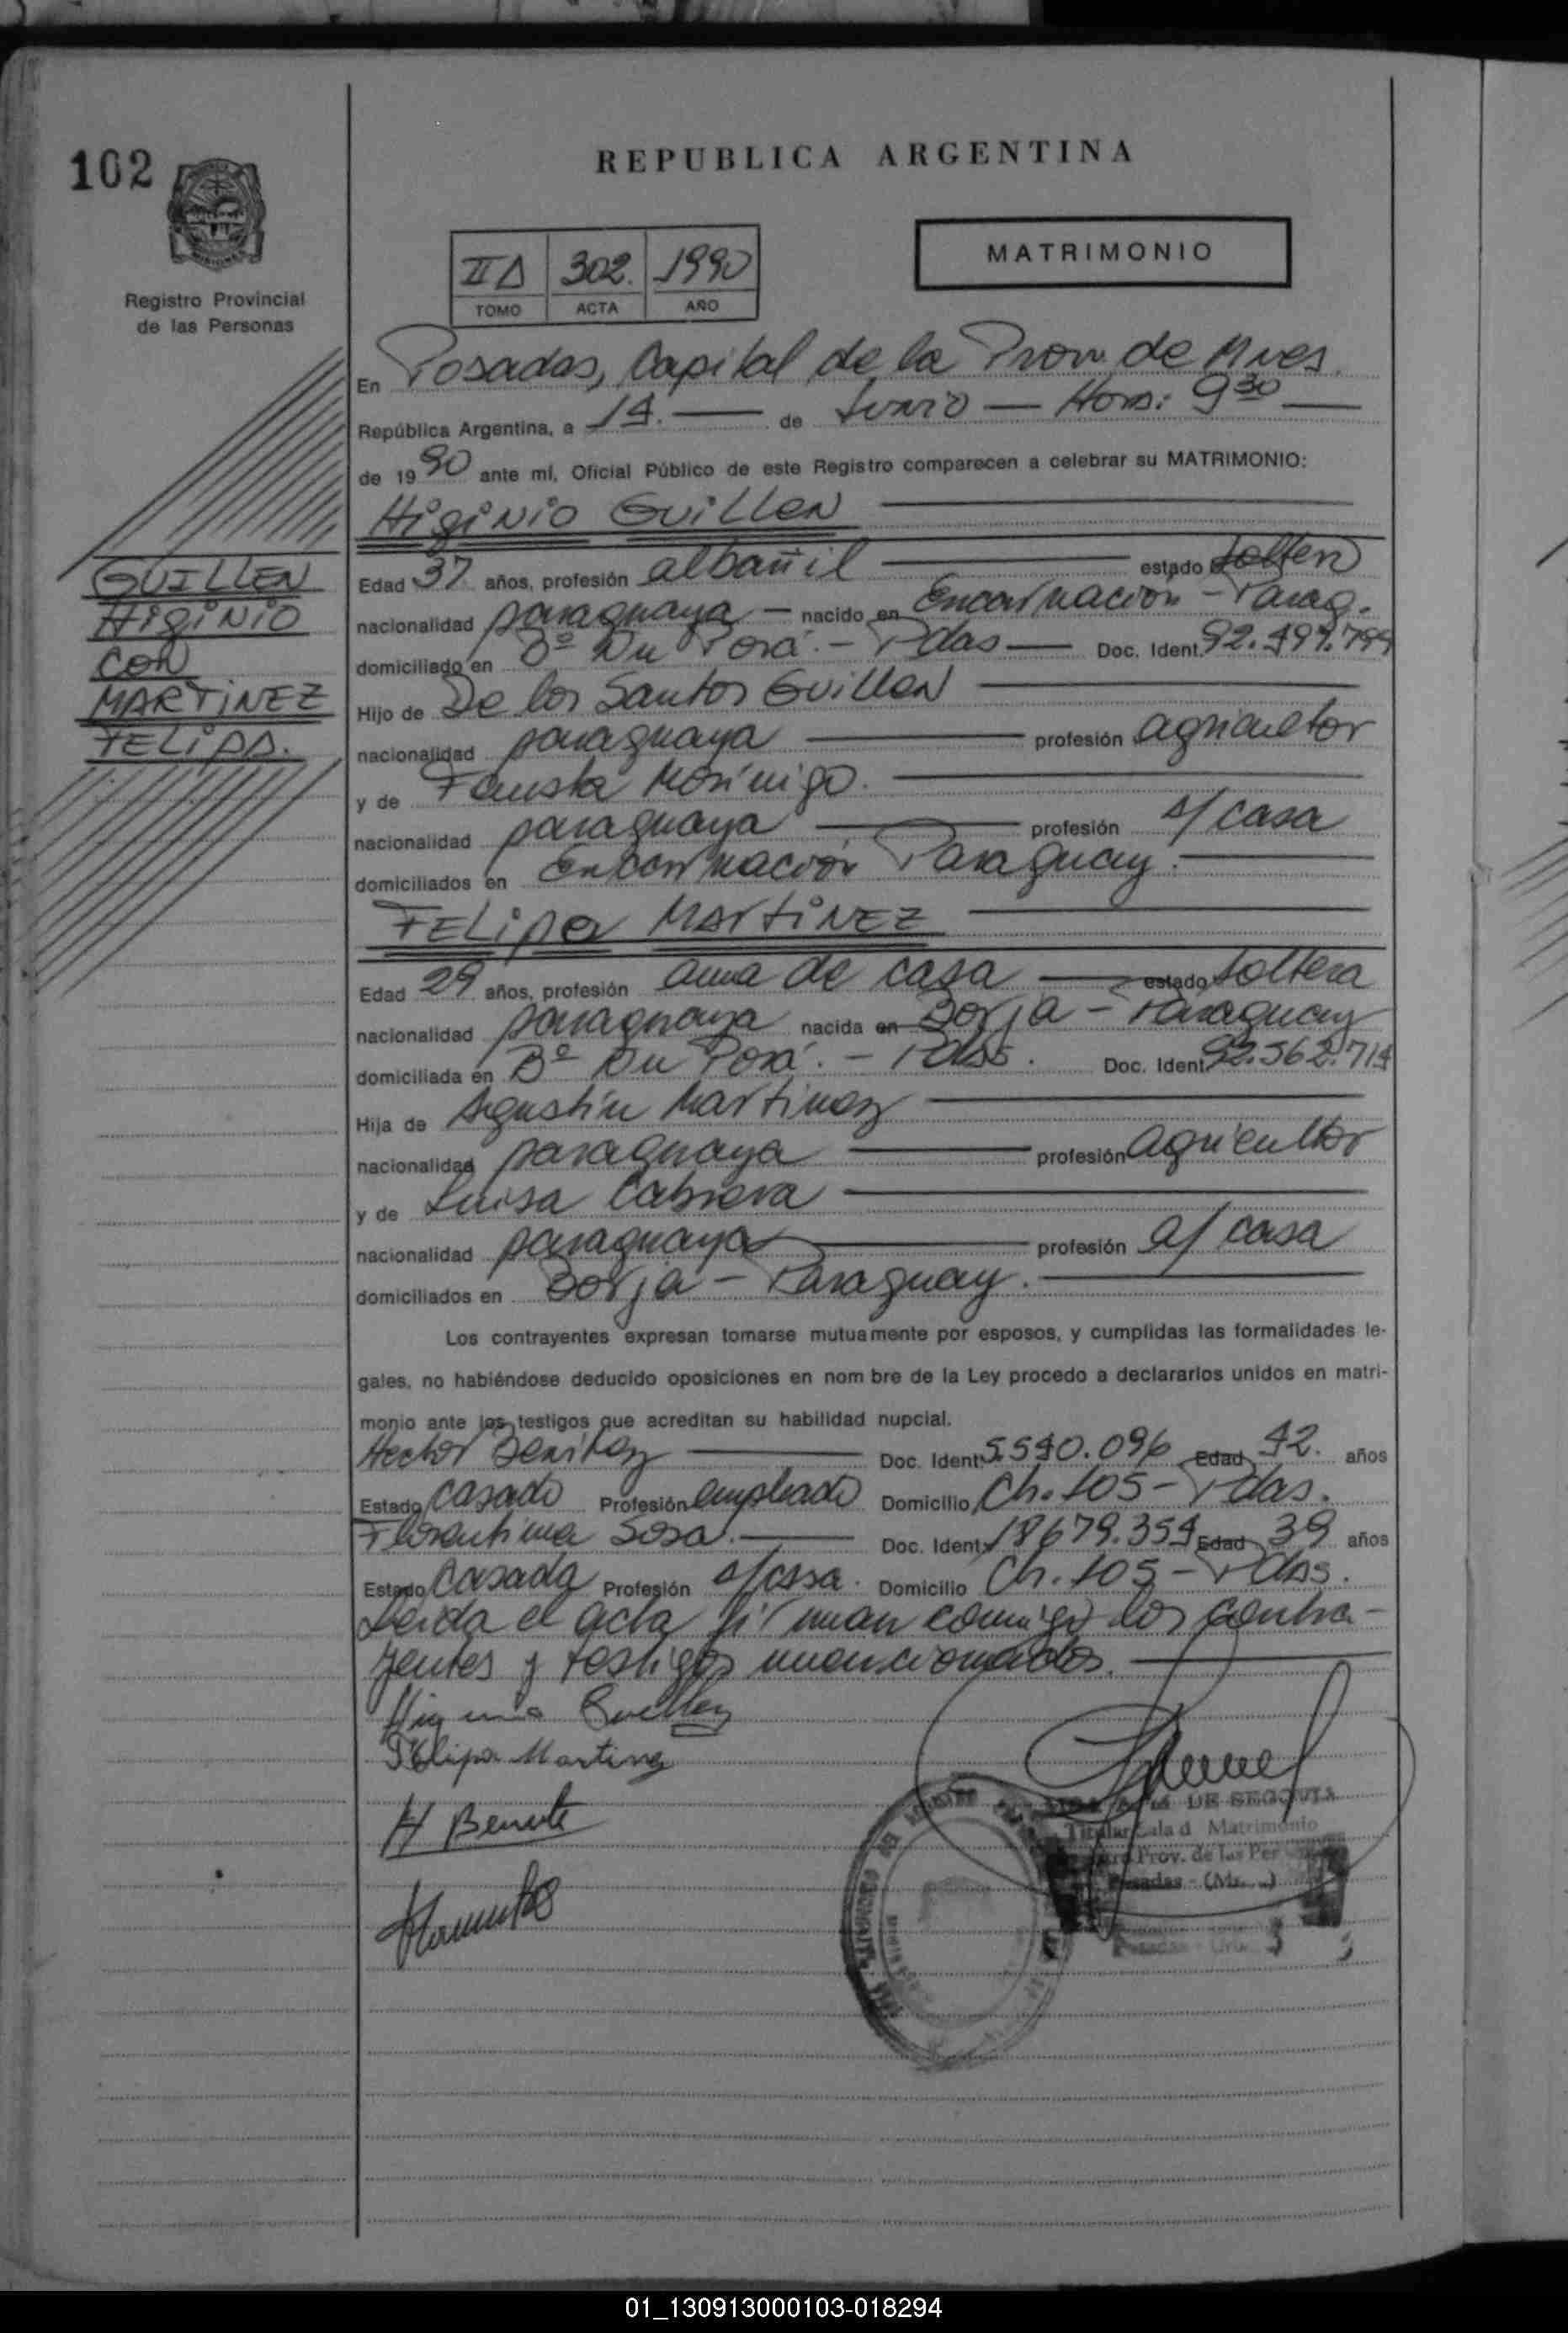 102
REPUBLICA ARGENTINA
MATRIMONIO
Registro Provincial
de las Personas
II A 302. 1990
TOMO ACTA AÑO
En Posadas, Capital de la Prov. de Mnes.
República Argentina, a 14. de Junio Hora: 9 30
de 1990 ante mí, Oficial Público de este Registro comparecen a celebrar su MATRIMONIO:
Higinio Guillen
GUILLEN
HiGiNiO
CON
MARTiNEZ
FELipA.
Edad 37 años, profesión albañil estado soltero
nacionalidad paraguaya - nacido en Encarnación - Parag.
domiciliado en Bº Ñu Porá. - Pdas Doc. Ident. 92.497.799
Hijo de De los Santos Guillen
nacionalidad paraguaya profesión agricultor
y de Fausta Morínigo.
nacionalidad paraguaya profesión a/ casa
domiciliados en Encarnación Paraguay.
FELipa MARTiNEZ
Edad 29 años, profesión ama de casa estado soltera
nacionalidad paraguaya nacida en Borja - Paraguay
domiciliada en Bº Ñu Porá. - Pdas. Doc. Ident. 92.562.714
Hija de Agustín Martinez
nacionalidad paraguaya profesión agricultor
y de Luisa Cabrera
nacionalidad paraguaya profesión a/ casa
domiciliados en Borja - Paraguay.
Los contrayentes expresan tomarse mutuamente por esposos, y cumplidas las formalidades le-
gales, no habiéndose deducido oposiciones en nom bre de la Ley procedo a declararlos unidos en matri-
monio ante los testigos que acreditan su habilidad nupcial.
Hector Benitez Doc. Ident. 5.540.096 Edad 42. años
Estado casado Profesión empleado Domicilio Ch. 105 - Pdas.
Florentina Sosa. Doc. Ident. 18679.354 Edad 39 años
Estado casada Profesión a/casa. Domicilio Ch. 105 - Pdas.
Leida el acta firman conmigo los contra-
yentes y testigos mencionados.
Higinio Guillen
Felipa Martinez
H Benite
DE SEGOVIA
Titular Sala d Matrimonio
Prov. de las Per
Posadas - (Mi
01_130913000103-018294